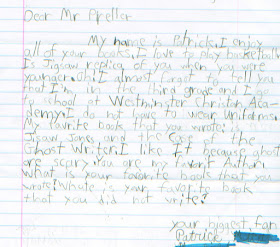 Dear Mr Preller
My name is Patrick. I enjoy
all of your books. I love to play basketball
Is Jigsaw replica of you when you were
younger. Oh! I almost forget to tell you
that I'm in the third grade and I go
to school at Westminster Christan Aca-
demy. I do not have to wear Uniforms.
My favorite books that you wrote is
Jigsaw Jones and the Case of the
Ghost Writer. I like it because about
are scary. You are my favorit Author.
What is your favorite books that you
wrote? Whate is your favorite book
that you did not write?
your biggest fan
Patrick